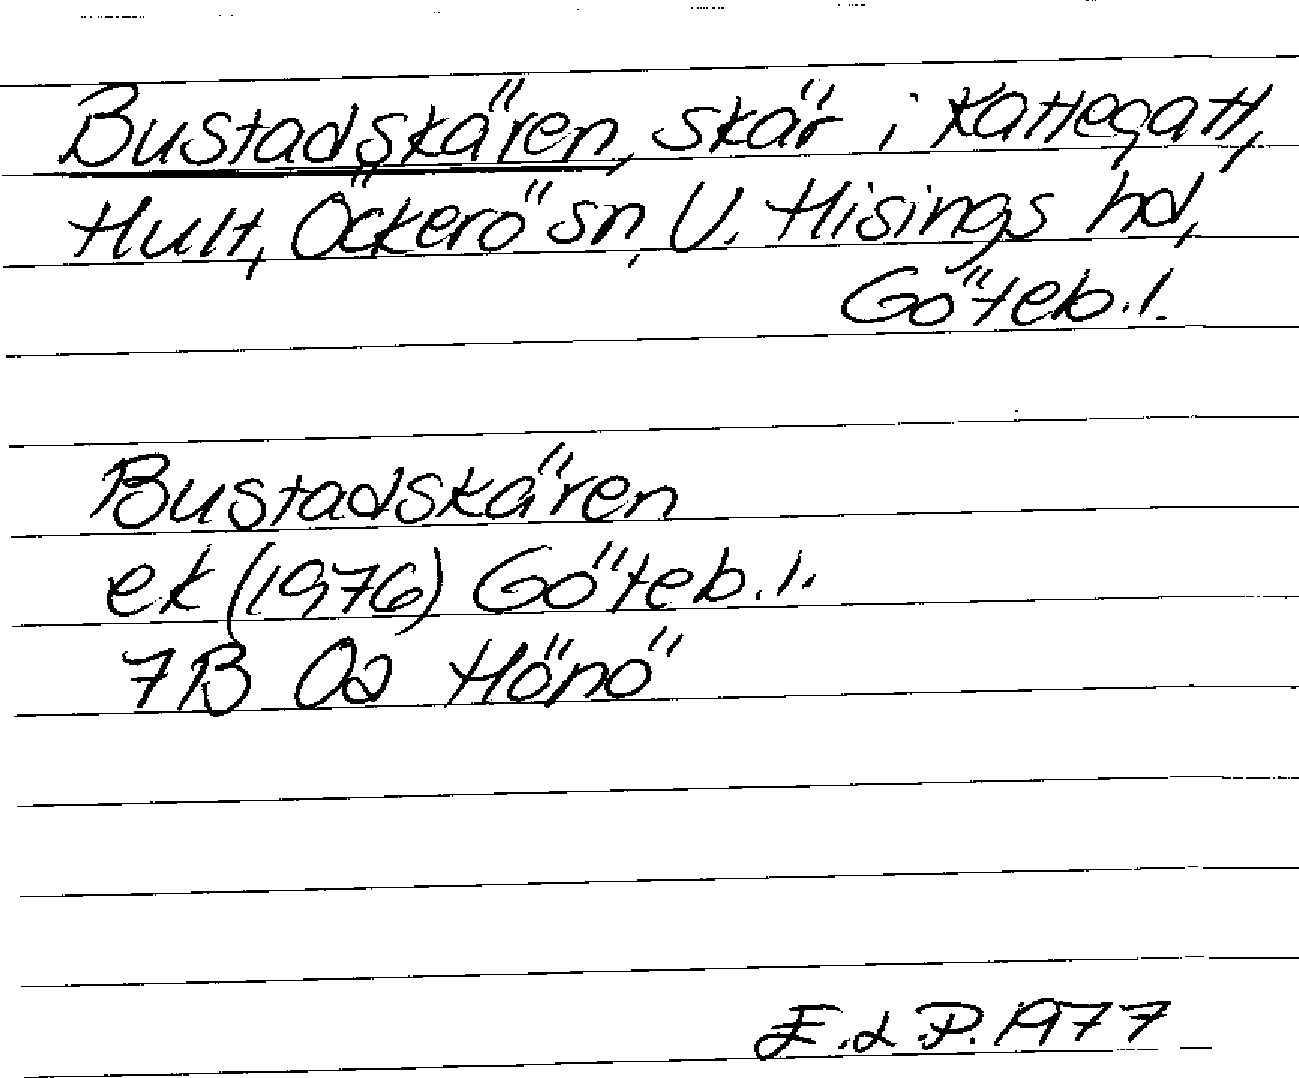 Bustadskären, skär i Kattegatt,
Hult, Öckerö sn, V. Hisings hd,
Göteb. l.
Bustadskären
ek (1976) Göteb. l.
7B 0a Hönö
E.d P. 1977